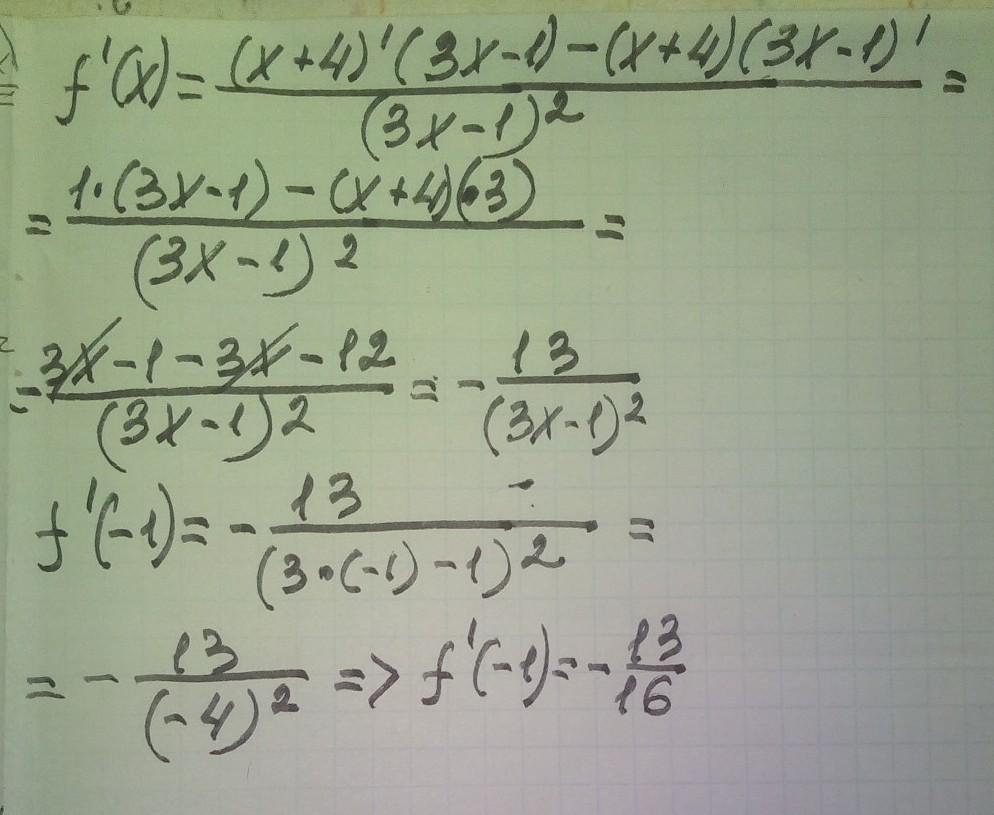 f'(x) = \frac{(x+4)'(3x-1)-(x+4)(3x-1)'}{(3x-1)^2} =
= \frac{1·(3x-1)-(x+4)(·3)}{(3x-1)^2} =
= \frac{3x-1-3x-12}{(3x-1)^2} = -\frac{13}{(3x-1)^2}
f'(-1) = -\frac{13}{(3·(-1)-1)^2} =
= -\frac{13}{(-4)^2} => f'(-1) = -\frac{13}{16}